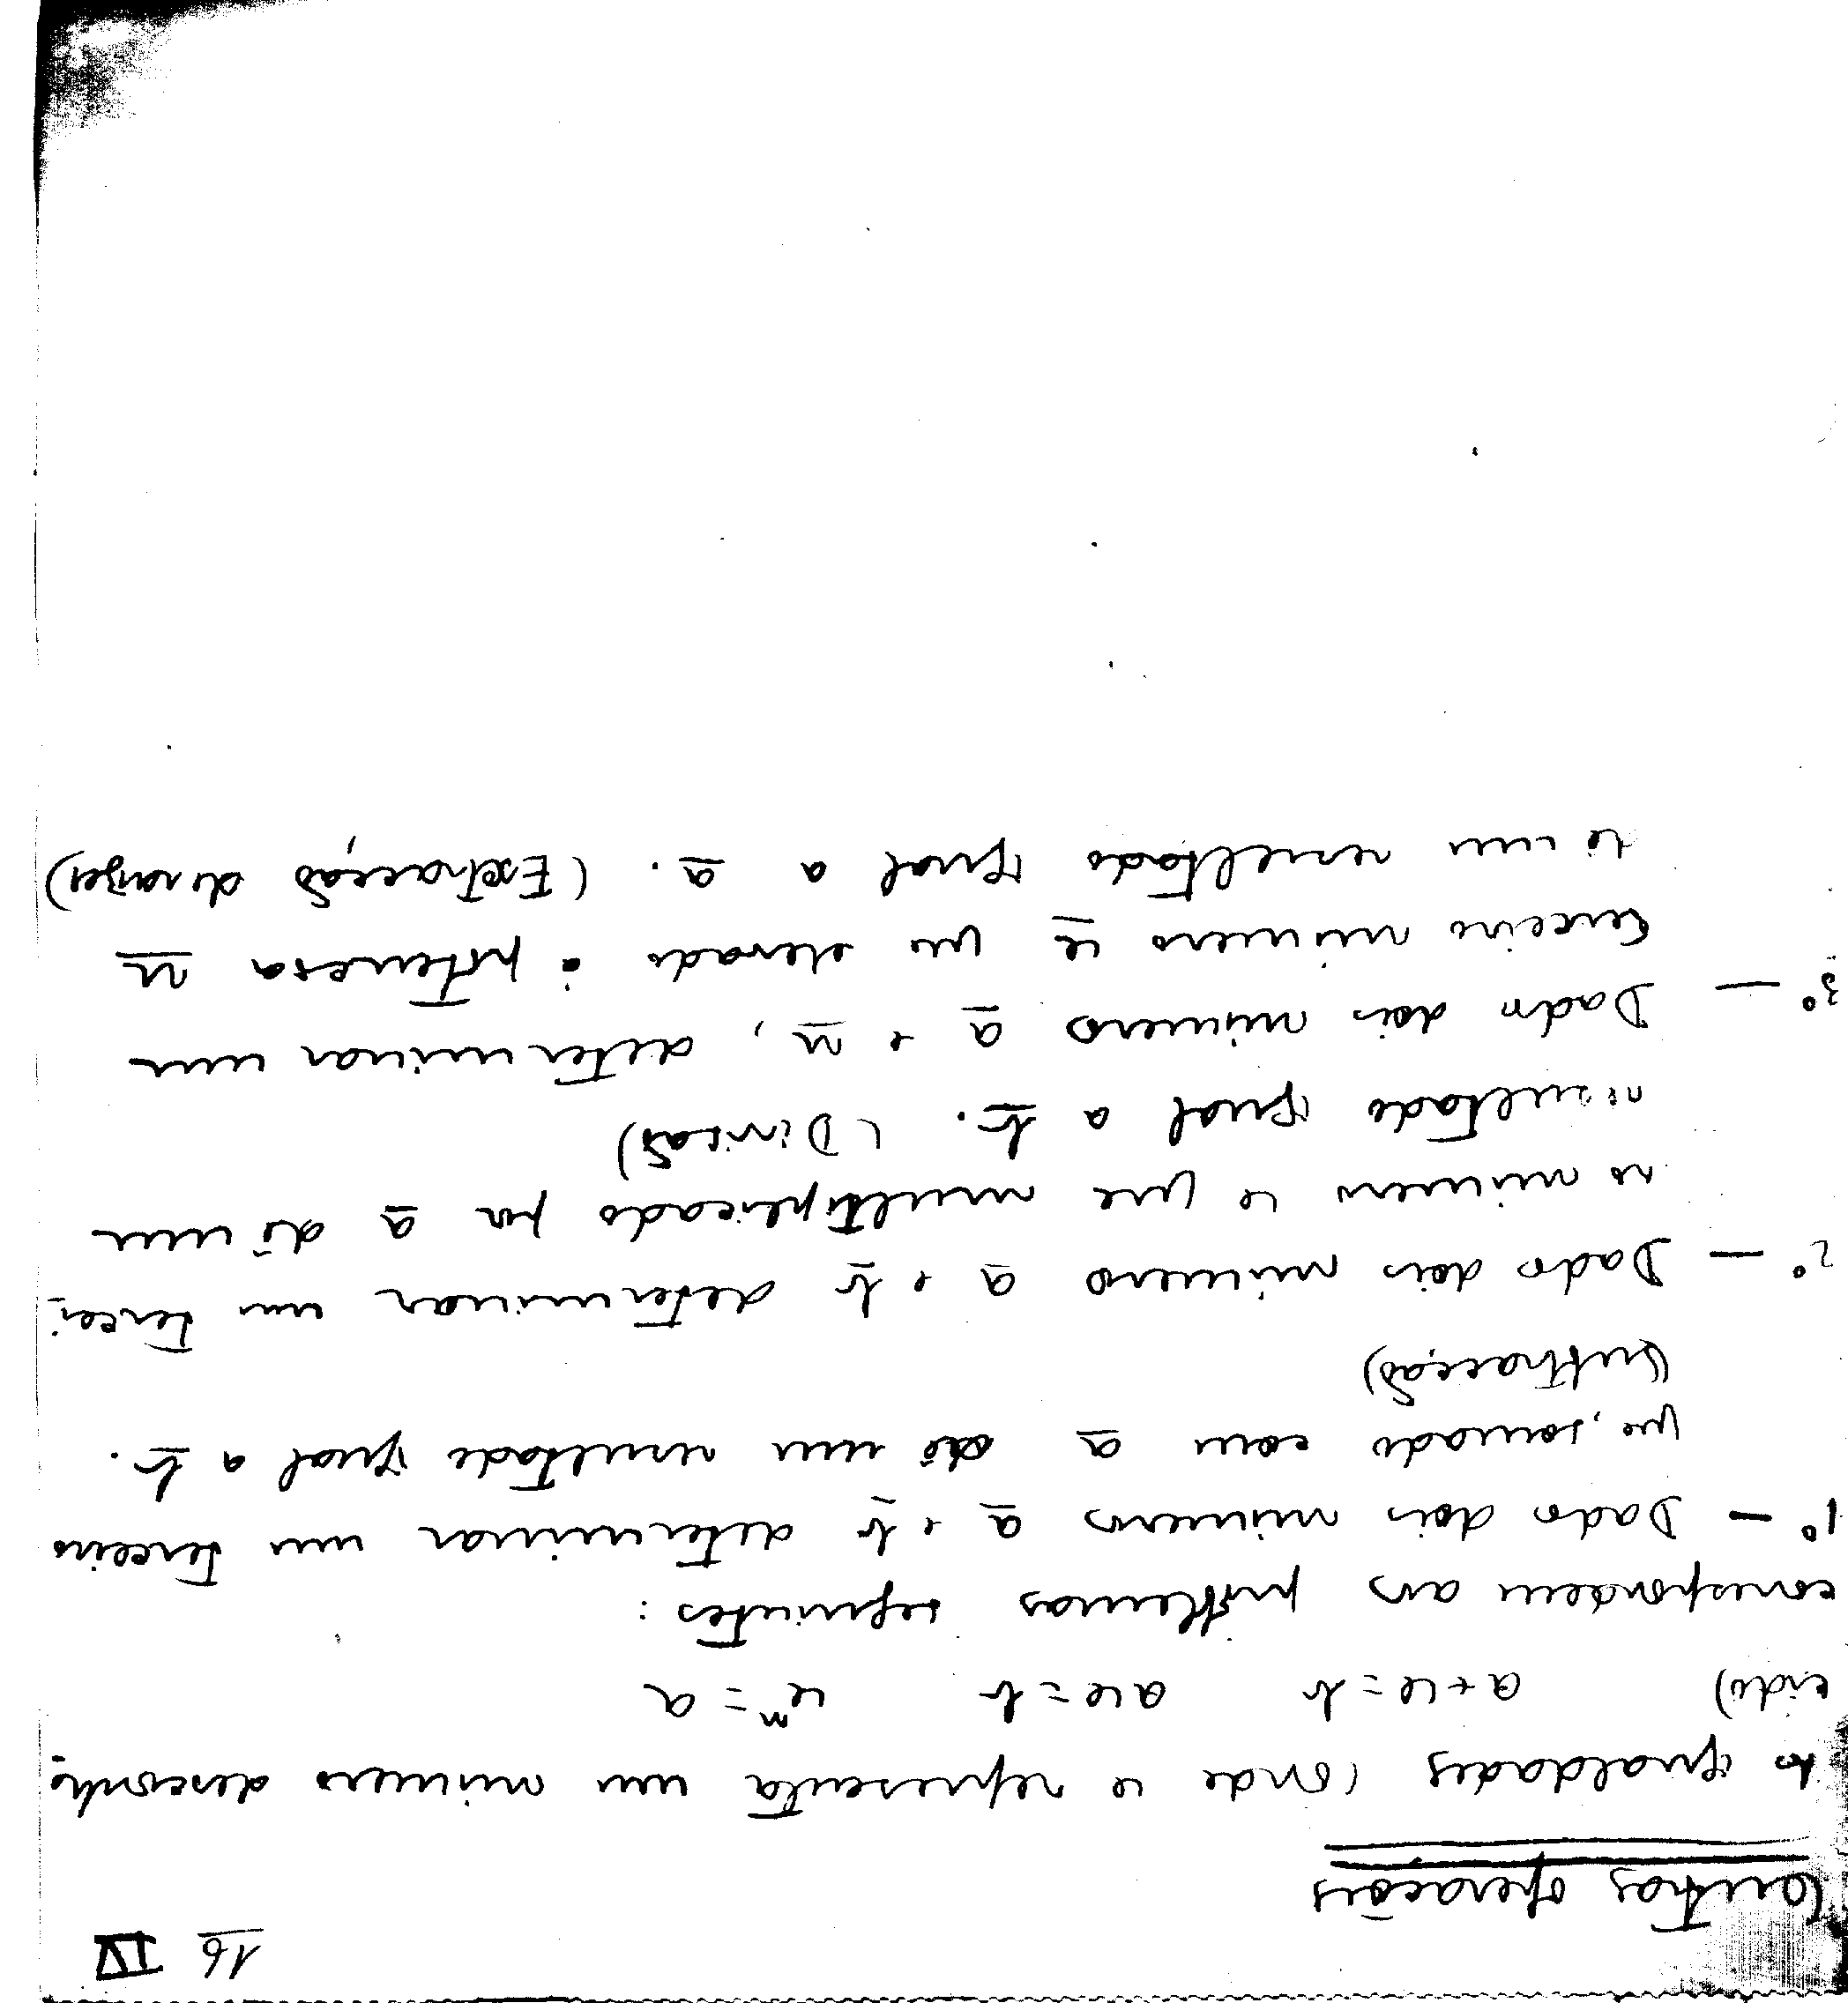 16 IV
Outras operações
As igualdades (onde x representa um número desconhe-
cido) a + x = b ax = b xⁿ = a
correspondem aos problemas seguintes:
1º — Dado dois números a e b determinar um terceiro
que, somado com a dê um resultado igual a b.
(Subtracção)
2º — Dado dois número a e b determinar um tercei-
ro número x que multiplicado por a dê um
resultado igual a b. (Divisão)
3º — Dado dois número a e n, determinar um
terceiro número x que elevado à potencia n
dê um resultado igual a a. (Extracção de raizes)